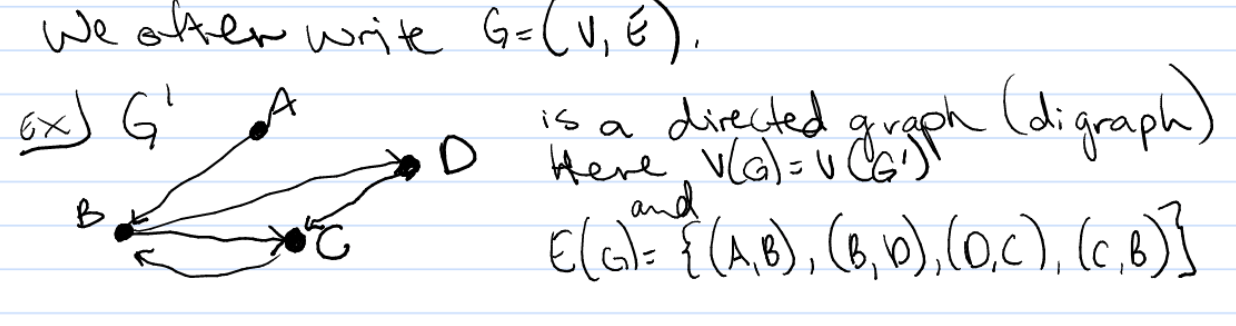 We often write G=(V,E).
Ex) G'
A
D
B
C
is a directed graph (digraph)
Here V(G)=V(G')
and
E(G)={(A,B),(B,D),(D,C),(C,B)}